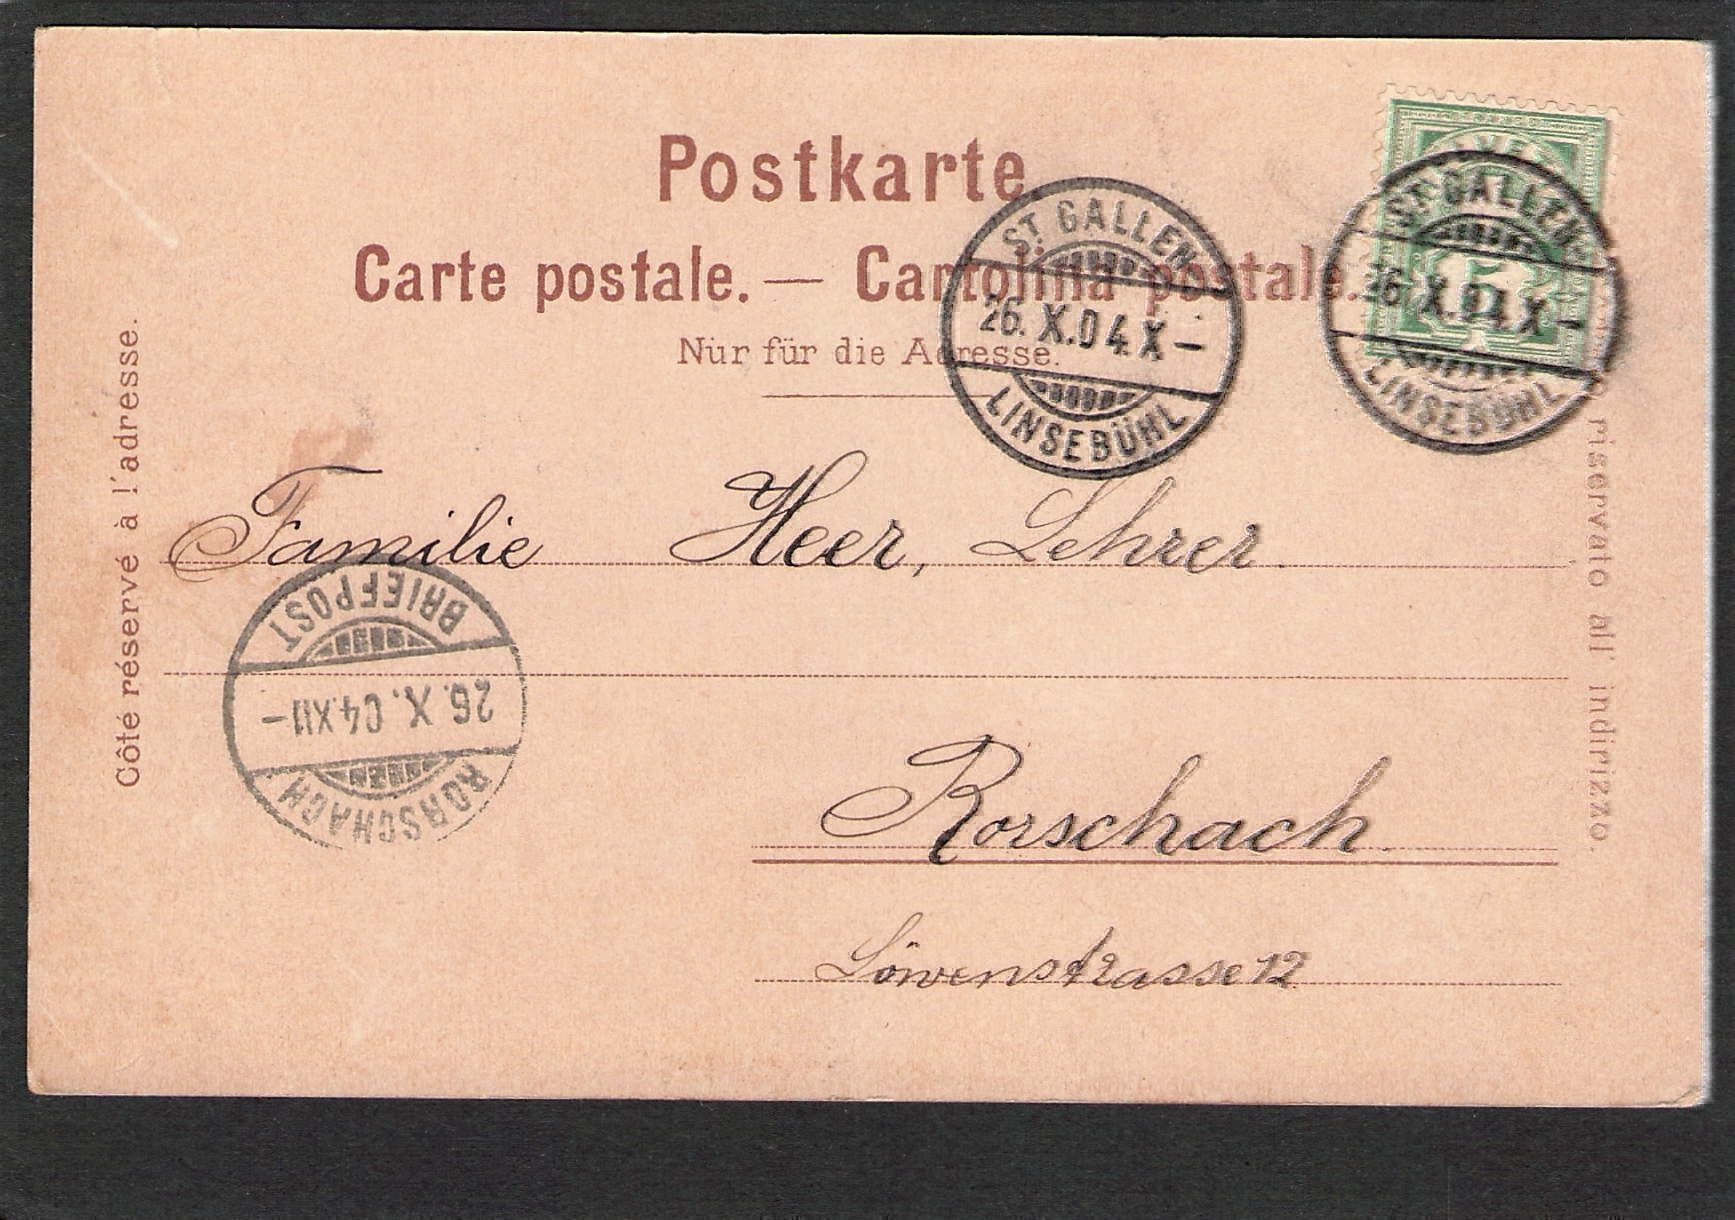 Postkarte
Carte postale. — Cartolina postale.
Nur für die Adresse.
Côté réservé à l'adresse.
riservato all' indirizzo.
5
ST. GALLEN
26. X. 04. X –
LINSEBÜHL
ST. GALLEN
26. X. 04. X –
LINSEBÜHL
Familie Heer, Lehrer.
RORSCHACH
26. X. 04. XII –
BRIEFPOST
Rorschach
Löwenstrasse 12